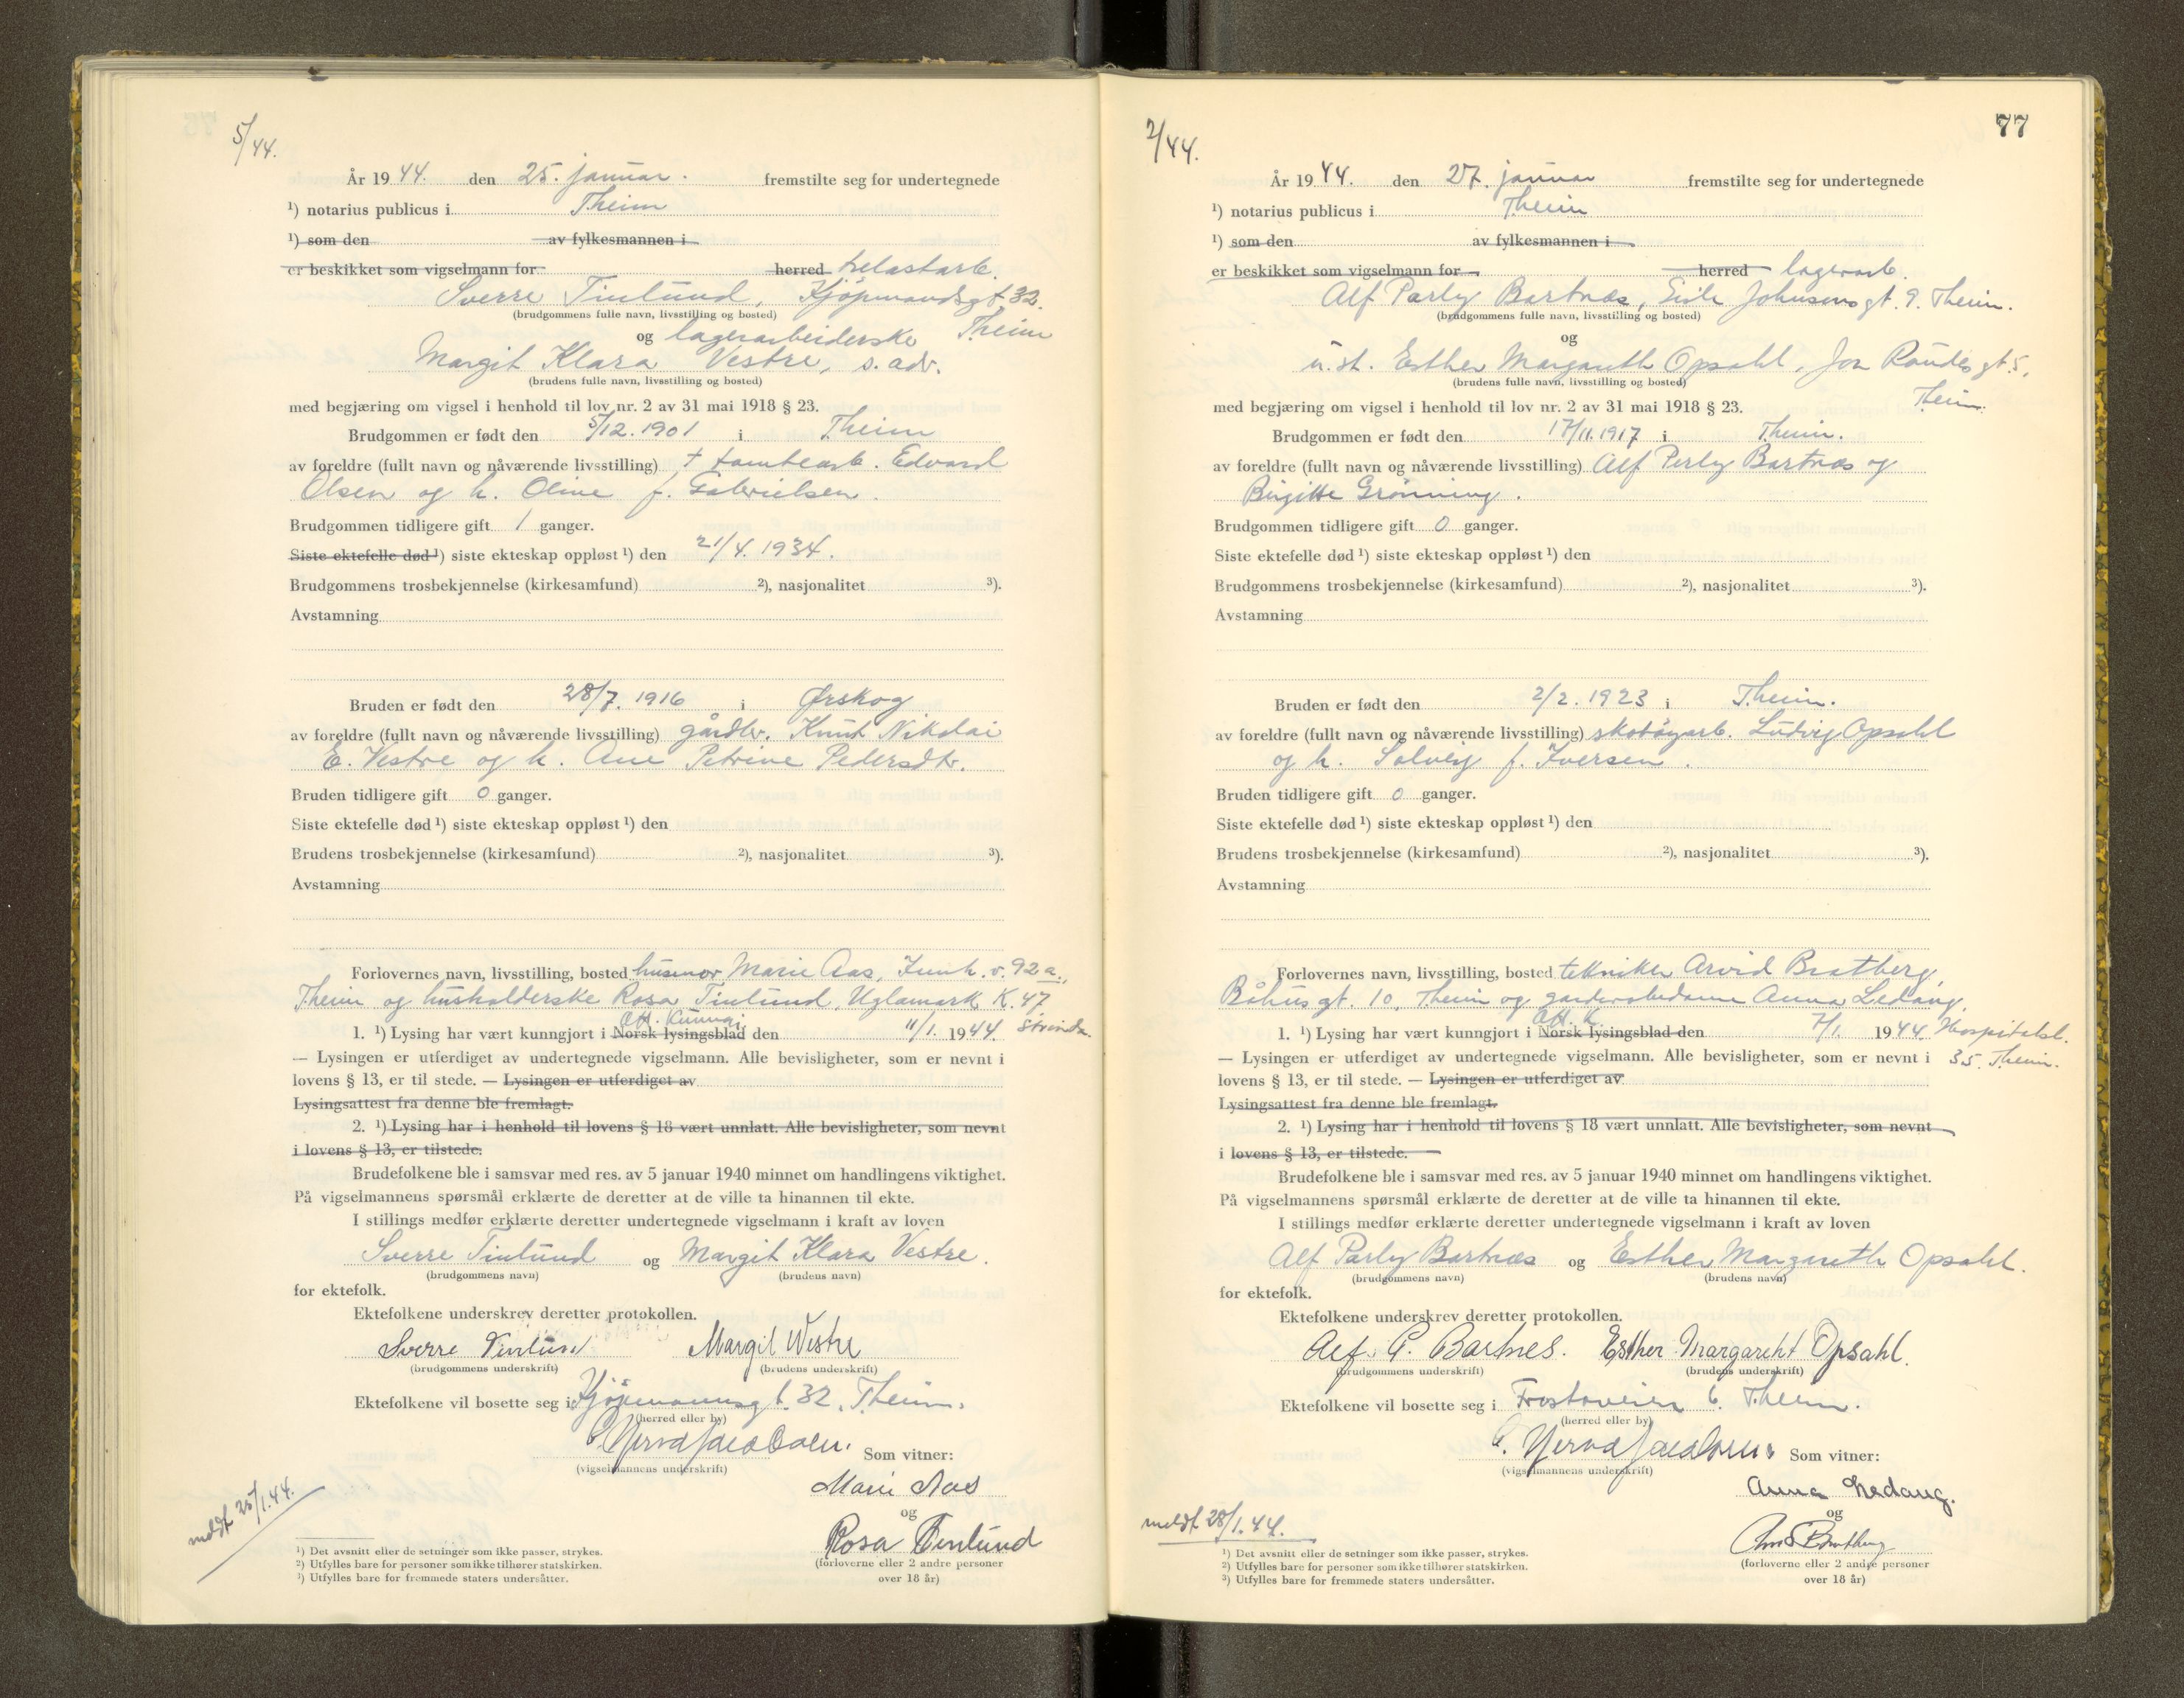 5/44.
År 19 44. den 25. januar. fremstilte seg for undertegnede
¹) notarius publicus i Theim
¹) som den av fylkesmannen i
er beskikket som vigselmann for herred
Sverre Tinlund, Kjøpmandsgt. 32.
(brudgommens fulle navn, livsstilling og bosted)
og lagerarbeiderske Theim
Margit Klara Vestre, s. adr.
(brudens fulle navn, livsstilling og bosted)
med begjæring om vigsel i henhold til lov nr. 2 av 31 mai 1918 § 23.
Brudgommen er født den 5/12. 1901 i Theim
av foreldre (fullt navn og nåværende livsstilling) † tomtearb. Edvard
Olsen og h. Oline f. Gabrielsen.
Brudgommen tidligere gift 1 ganger.
Siste ektefelle død ¹) siste ekteskap oppløst ¹) den 21/4. 1934.
Brudgommens trosbekjennelse (kirkesamfund) ²), nasjonalitet ³).
Avstamning
Bruden er født den 28/7. 1916 i Ørskog
av foreldre (fullt navn og nåværende livsstilling) gårdbr. Knut Nikolai
E. Vestre og h. Ane Petrine Pedersdtr.
Bruden tidligere gift 0 ganger.
Siste ektefelle død ¹) siste ekteskap oppløst ¹) den
Brudens trosbekjennelse (kirkesamfund) ²), nasjonalitet ³).
Avstamning
Forlovernes navn, livsstilling, bosted husmor Marie Aas, Innh. v. 92 a.,
Theim og husholderske Rosa Tinlund, Uglamark K. 47
Off. Kunngj.
1. ¹) Lysing har vært kunngjort i Norsk lysingsblad den 11/1. 1944. Strinda.
— Lysingen er utferdiget av undertegnede vigselmann. Alle bevisligheter, som er nevnt i
lovens § 13, er til stede. — Lysingen er utferdiget av
Lysingsattest fra denne ble fremlagt.
2. ¹) Lysing har i henhold til lovens § 18 vært unnlatt. Alle bevisligheter, som nevnt
i lovens § 13, er tilstede.
Brudefolkene ble i samsvar med res. av 5 januar 1940 minnet om handlingens viktighet.
På vigselmannens spørsmål erklærte de deretter at de ville ta hinannen til ekte.
I stillings medfør erklærte deretter undertegnede vigselmann i kraft av loven
Sverre Tinlund og Margit Klara Vestre.
(brudgommens navn) (brudens navn)
for ektefolk.
Ektefolkene underskrev deretter protokollen.
Sverre Tinlund Margit Westre
(brudgommens underskrift) (brudens underskrift)
Ektefolkene vil bosette seg i Kjøpmannsgt. 32, Theim.
(herred eller by)
Som vitner:
(vigselmannens underskrift)
Marie Aas
og
Rosa Tinlund
(forloverne eller 2 andre personer
over 18 år)
meldt 25/1.44.
¹) Det avsnitt eller de setninger som ikke passer, strykes.
²) Utfylles bare for personer som ikke tilhører statskirken.
³) Utfylles bare for fremmede staters undersåtter.
77
2/44.
År 19 44. den 27. januar fremstilte seg for undertegnede
¹) notarius publicus i Theim
¹) som den av fylkesmannen i
er beskikket som vigselmann for herred lagerarb.
Alf Parly Bartnæs, Eirik Johnsensgt. 9. Theim.
(brudgommens fulle navn, livsstilling og bosted)
og
u. st. Esther Margareth Opsahl, Jon Raudes gt. 5,
(brudens fulle navn, livsstilling og bosted)
Theim.
med begjæring om vigsel i henhold til lov nr. 2 av 31 mai 1918 § 23.
Brudgommen er født den 17/11. 1917 i Theim.
av foreldre (fullt navn og nåværende livsstilling) Alf Perly Bartnæs og
Birgitte Grønning.
Brudgommen tidligere gift 0 ganger.
Siste ektefelle død ¹) siste ekteskap oppløst ¹) den
Brudgommens trosbekjennelse (kirkesamfund) ²), nasjonalitet ³).
Avstamning
Bruden er født den 2/2. 1923 i Theim.
av foreldre (fullt navn og nåværende livsstilling) skotøyarb. Ludvig Opsahl
og h. Solveig f. Iversen.
Bruden tidligere gift 0 ganger.
Siste ektefelle død ¹) siste ekteskap oppløst ¹) den
Brudens trosbekjennelse (kirkesamfund) ²), nasjonalitet ³).
Avstamning
Forlovernes navn, livsstilling, bosted tekniker Arvid Bratberg,
Båhusgt. 10, Theim og garderobedame Anna Ledang,
Off. K.
1. ¹) Lysing har vært kunngjort i Norsk lysingsblad den 7/1. 1944. Hospitalsl.
— Lysingen er utferdiget av undertegnede vigselmann. Alle bevisligheter, som er nevnt i 35. Theim.
lovens § 13, er til stede. — Lysingen er utferdiget av
Lysingsattest fra denne ble fremlagt.
2. ¹) Lysing har i henhold til lovens § 18 vært unnlatt. Alle bevisligheter, som nevnt
i lovens § 13, er tilstede.
Brudefolkene ble i samsvar med res. av 5 januar 1940 minnet om handlingens viktighet.
På vigselmannens spørsmål erklærte de deretter at de ville ta hinannen til ekte.
I stillings medfør erklærte deretter undertegnede vigselmann i kraft av loven
Alf Parly Bartnæs og Esther Margareth Opsahl.
(brudgommens navn) (brudens navn)
for ektefolk.
Ektefolkene underskrev deretter protokollen.
Alf. P. Bartnes. Esther Margareht Opsahl.
(brudgommens underskrift) (brudens underskrift)
Ektefolkene vil bosette seg i Frostaveien 6. Theim.
(herred eller by)
Som vitner:
(vigselmannens underskrift)
Anna Ledang.
og
(forloverne eller 2 andre personer
over 18 år)
meldt 28/1.44.
¹) Det avsnitt eller de setninger som ikke passer, strykes.
²) Utfylles bare for personer som ikke tilhører statskirken.
³) Utfylles bare for fremmede staters undersåtter.